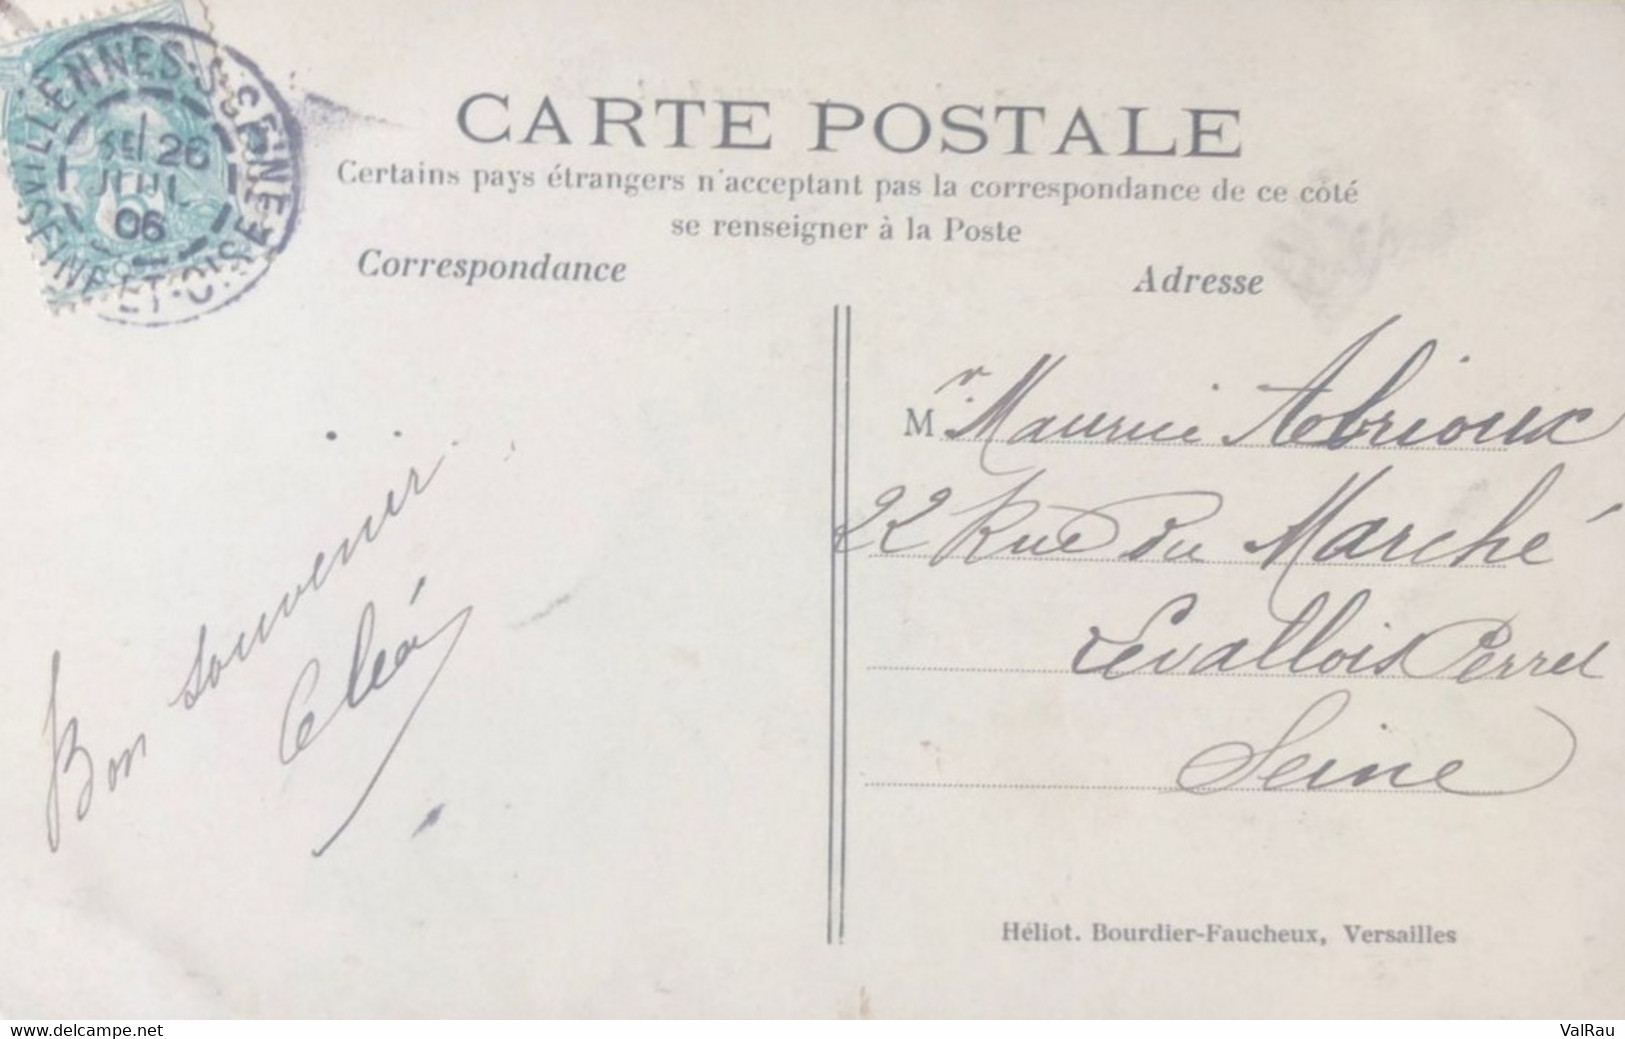 VILLENNES-S-SEINE
SEINE-ET-OISE
26
JUIL
06
CARTE POSTALE
Certains pays étrangers n'acceptant pas la correspondance de ce côté
se renseigner à la Poste
Correspondance
Adresse
Bon souvenir
Mr Maurice Abrioux
22 Rue du Marché
Levallois Perret
Seine
Héliot. Bourdier-Faucheux, Versailles
www.delcampe.net
ValRau